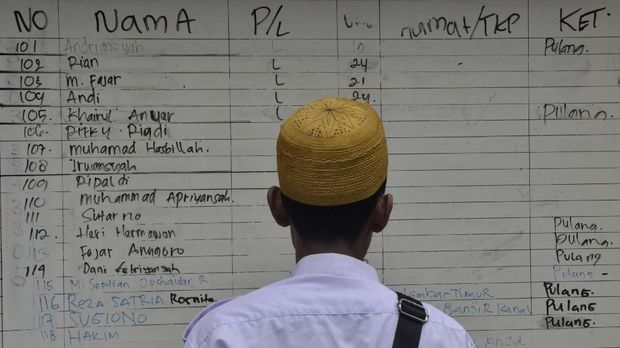 NO NAMA P/L U... numat/TKP KET.
101 Andriansyah L Pulang.
102 Rian L 24 -
103 m. Fajar L 21
104 Andi L 24.
105. Khairul Anwar L Pulang.
106. Rizky. Riadi
107. muhamad Hasbillah.
108 Irwansyah
109 Ripaldi
110 muhammad Apriyansah.
111 Sutarno Pulang.
112. Heri Hermawan Pulang.
113 Fajar Anugoro Pulang
114 Dani Febriyansah Pulang -
115 M. R. Pulang.
116 REZA SATRIA. TIMUR Pulang.
117 SUGIONO BANJIR KANAL Pulang.
118 HAKIM